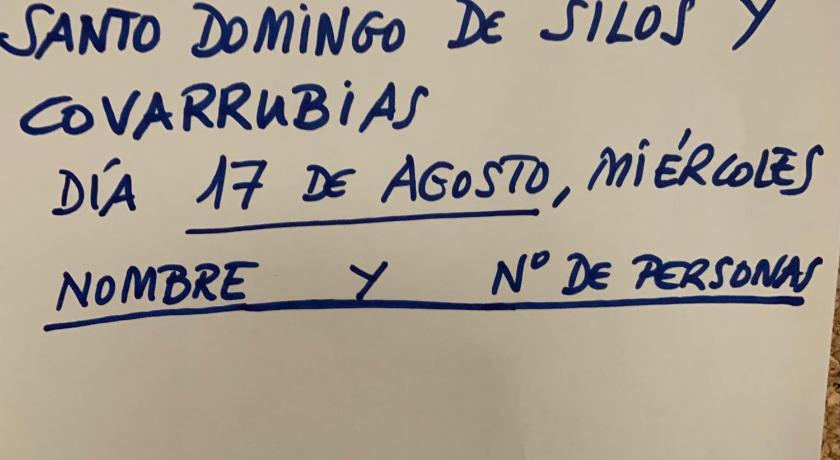 SANTO DOMINGO DE SILOS Y
COVARRUBIAS
DÍA 17 DE AGOSTO, MIÉRCOLES
NOMBRE Y Nº DE PERSONAS